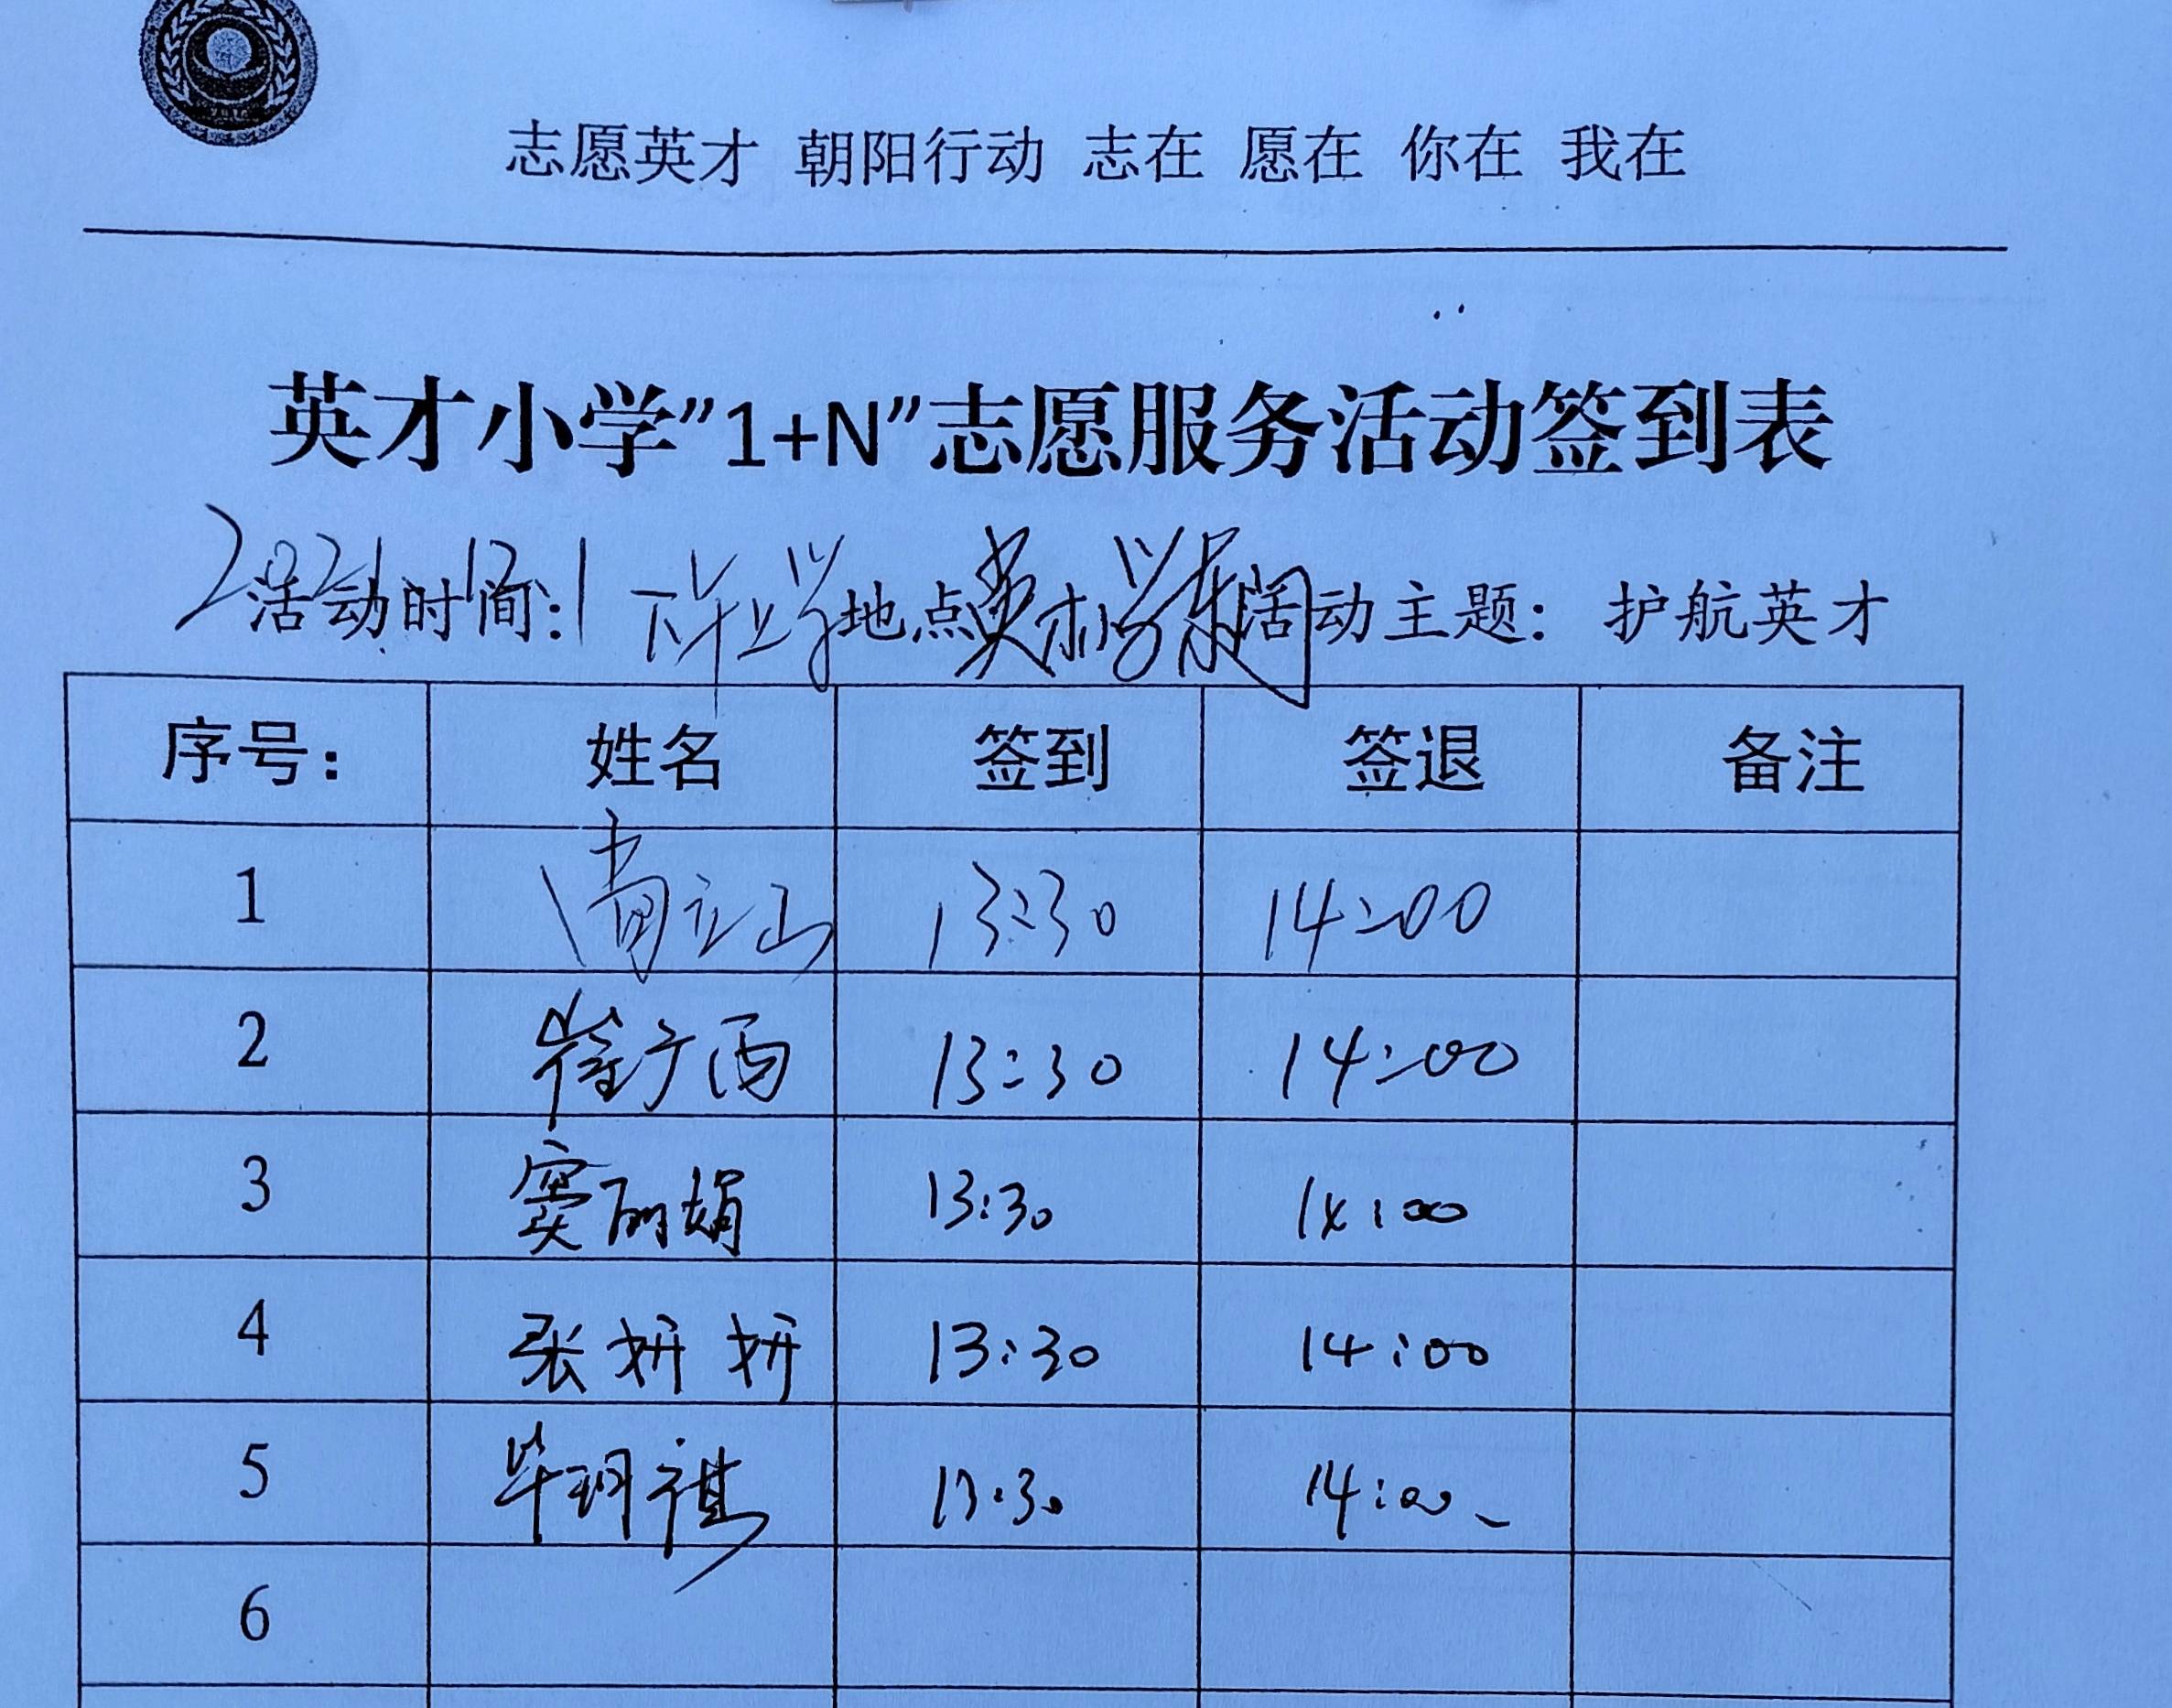 志愿英才 朝阳行动 志在 愿在 你在 我在
英才小学”1+N”志愿服务活动签到表
活动时间: 2021.12.1 下午上学 地点 英才小学东 活动主题: 护航英才
序号: 姓名 签到 签退 备注
1 立山 13:30 14:00
2 崔广西 13:30 14:00
3 窦丽娟 13:30 14:00
4 张妍妍 13:30 14:00
5 毕玥祺 13:30 14:00
6